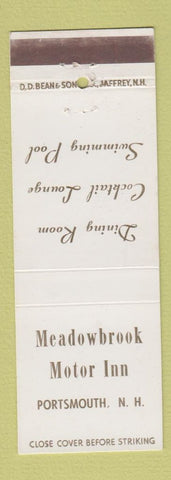 D.D. BEAN & SON JAFFREY, N.H.
Dining Room
Cocktail Lounge
Swimming Pool
Meadowbrook
Motor Inn
PORTSMOUTH, N. H.
CLOSE COVER BEFORE STRIKING